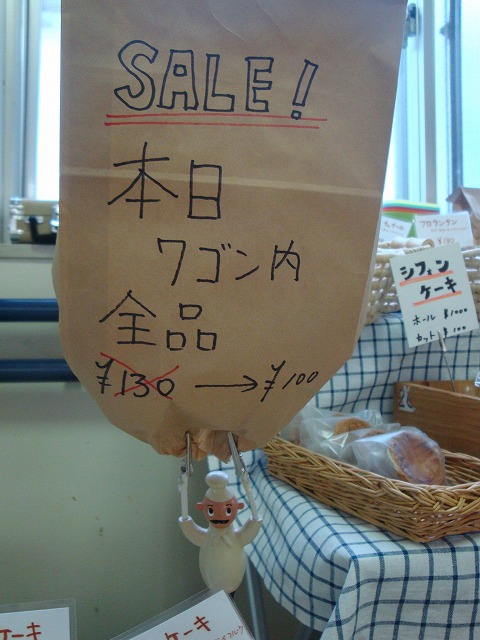 SALE!
本日
ワゴン内
全品
¥130 → ¥100
フロランタン
シフォン
ケーキ
ホール ¥1000
カット ¥100
ケーキ
ケーキ